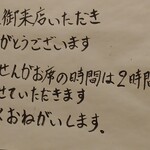 御来店いただき
がとうございます
せんがお席の時間は2時間
せていただきます
くおねがいします、